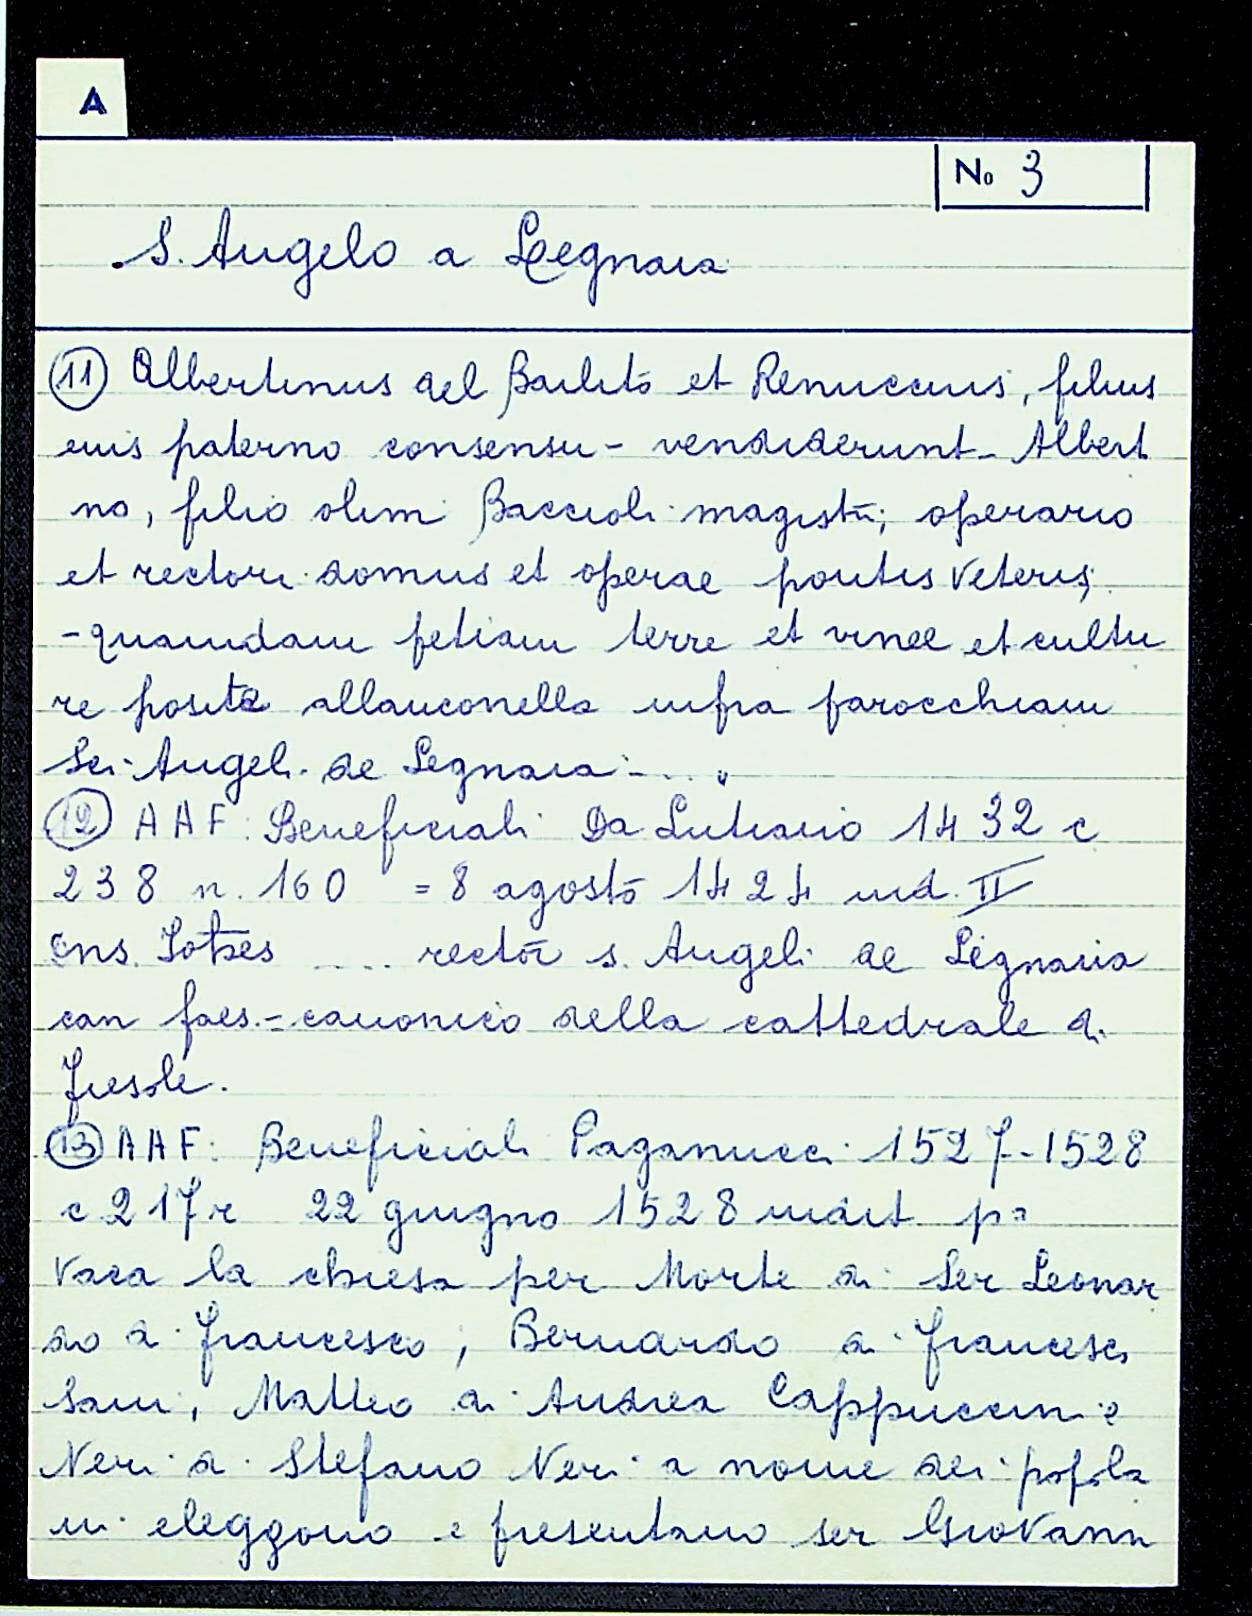 A
No 3
S. Angelo a Legnaia
11 Albertinus del Bailito et Renuccius, filius
eius paterno consensu - vendiderunt - Albert
no, filio olim Baccioli magistri, operario
et rectori domus et operae pontis Veteris,
- quamdam petiam terre et vinee et cultu
re posita allanconella infra parocchiam
Sci Angeli de Legnaia ....
12 AAF: Beneficiali Da Lutiano 1432 c
238 n. 160 = 8 agosto 1424 ind. II
.... rector s. Angeli de Legnaia
can faes. - canonico della cattedrale di
Fiesole.
13 AAF: Beneficiali Paganucci 1527-1528
c 217r 22 giugno 1528 indit pa
Vaca la chiesa per Morte di Ser Leonar
do di Francesco; Bernardo di Francesc
Sani, Matteo di Andrea Cappuccini e
Neri di Stefano Neri a nome dei popola
ni eleggono e presentano ser Giovanni